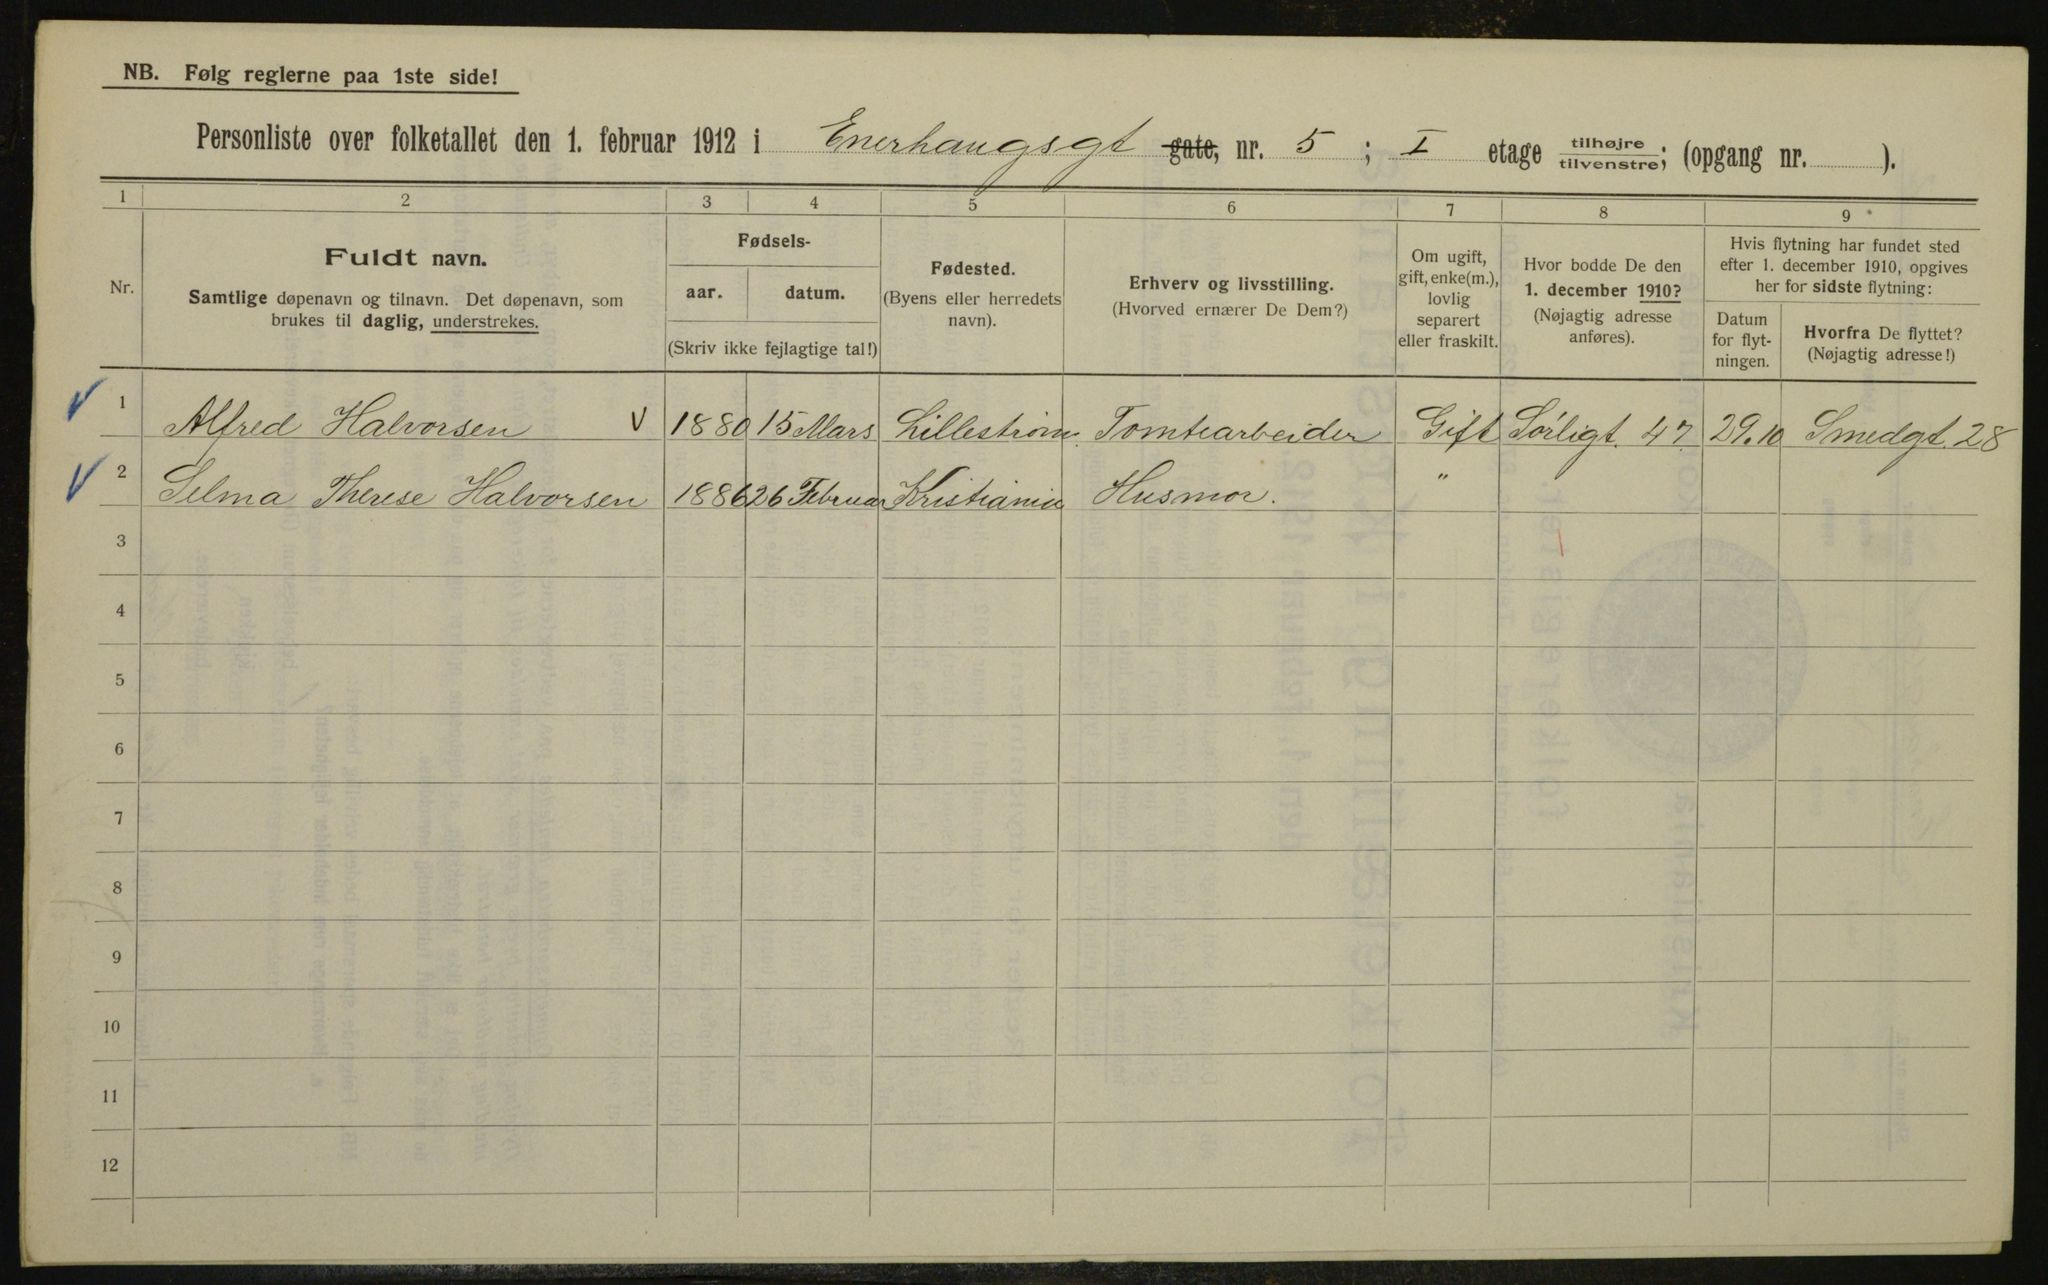 NB. Følg reglerne paa 1ste side!
Personliste over folketallet den 1. februar 1912 i Enerhaugsgt gate, nr. 5 ; I etage tilhøjre / tilvenstre; (opgang nr. ).
1 2 3 4 5 6 7 8 9
Nr.
Fuldt navn.
Samtlige døpenavn og tilnavn. Det døpenavn, som
brukes til daglig, understrekes.
Fødsels-
aar. datum.
(Skriv ikke fejlagtige tal!)
Fødested.
(Byens eller herredets
navn).
Erhverv og livsstilling.
(Hvorved ernærer De Dem?)
Om ugift,
gift, enke(m.),
lovlig
separert
eller fraskilt.
Hvor bodde De den
1. december 1910?
(Nøjagtig adresse
anføres).
Hvis flytning har fundet sted
efter 1. december 1910, opgives
her for sidste flytning:
Datum
for flyt-
ningen.
Hvorfra De flyttet?
(Nøjagtig adresse!)
1 Alfred Halvorsen V 1880 15 Mars Lillestrøm Tomtearbeider Gift Sørligt. 47 29.10 Smedgt. 28
2 Selma Therese Halvorsen 1886 26 Februar Kristiania Husmor. "
3
4
5
6
7
8
9
10
11
12